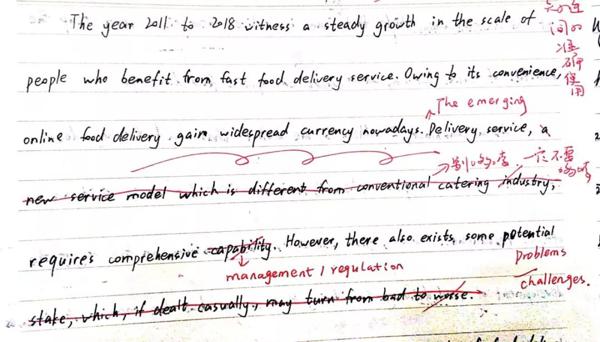 The year 2011 to 2018 witness a steady growth in the scale of
people who benefit from fast food delivery service. Owing to its convenience,
The emerging
online food delivery gain widespread currency nowadays. Delivery service, a
new service model which is different from conventional catering industry,
requires comprehensive capability. However, there also exists some potential
management / regulation
problems
challenges.
stake, which, if dealt casually, may turn from bad to worse.